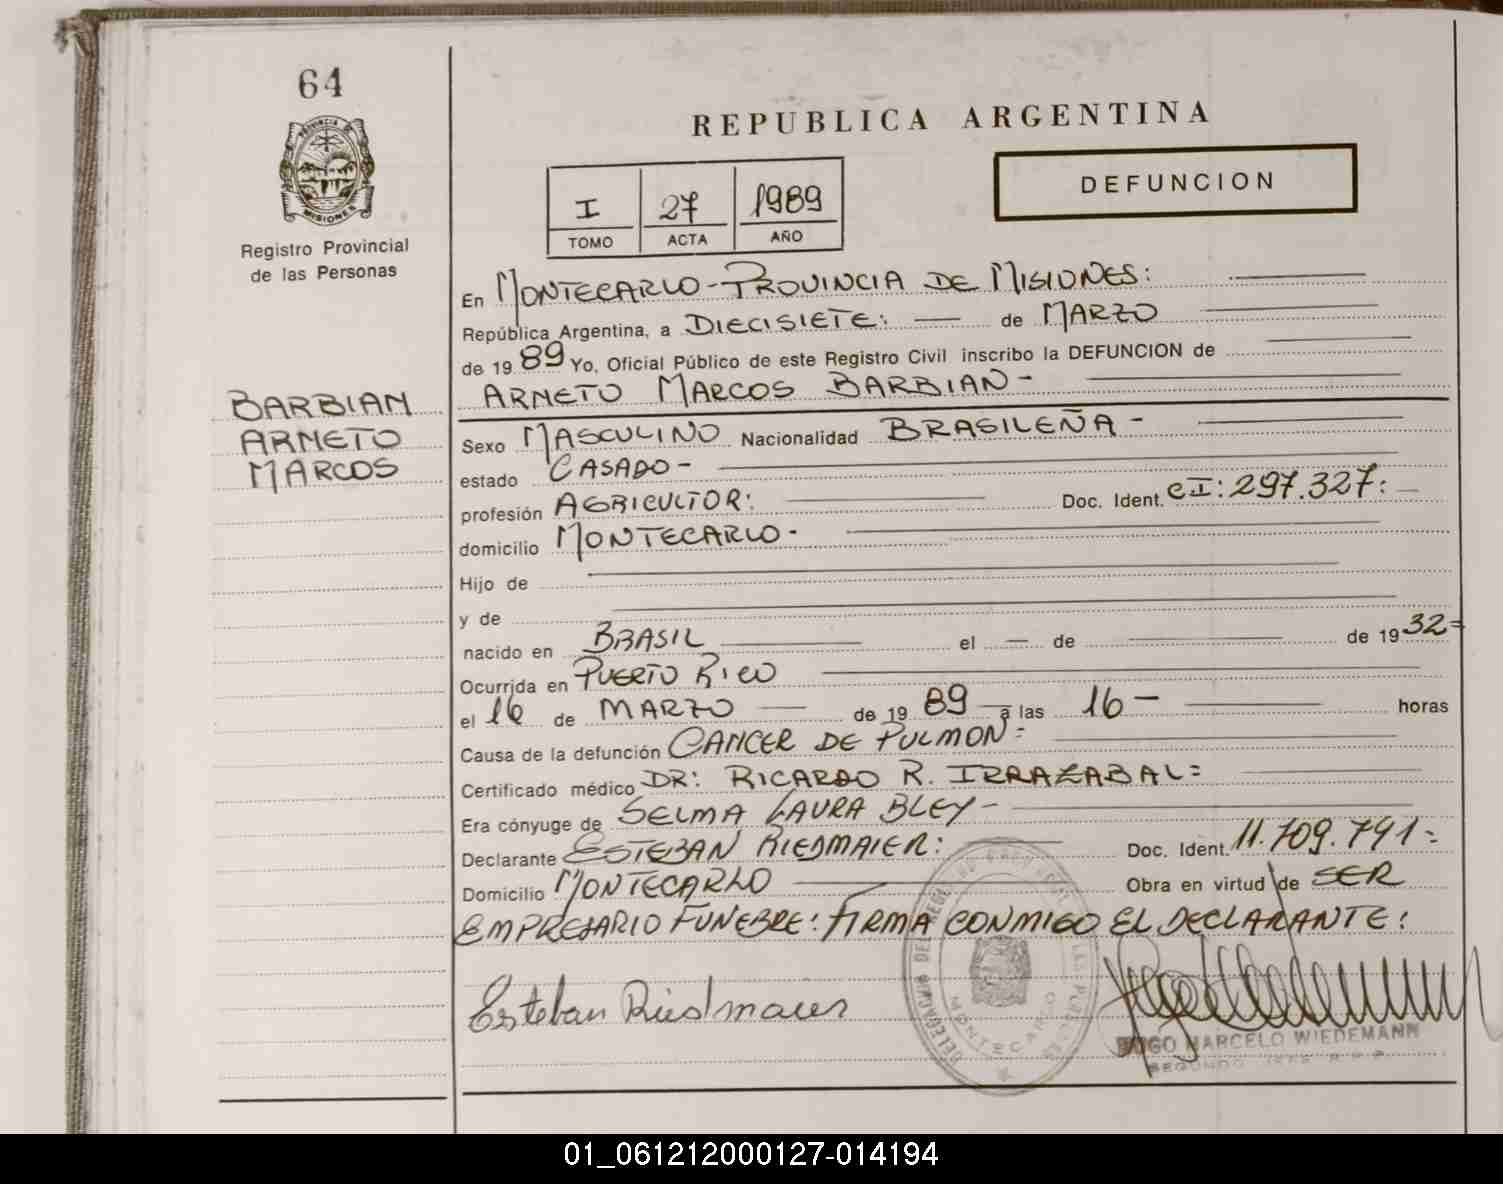 64
PROVINCIA DE
MISIONES
Registro Provincial
de las Personas
REPUBLICA ARGENTINA
I 27 1989
TOMO ACTA AÑO
DEFUNCION
En MONTECARLO - PROVINCIA DE MISIONES:
República Argentina, a DIECISIETE: de MARZO
de 1989 Yo, Oficial Público de este Registro Civil inscribo la DEFUNCION de
ARNETO MARCOS BARBIAN -
BARBIAN
ARNETO
MARCOS
Sexo MASCULINO Nacionalidad BRASILEÑA -
estado CASADO -
profesión AGRICULTOR: Doc. Ident. CI: 297.327: -
domicilio MONTECARLO -
Hijo de
y de
nacido en BRASIL el — de de 1932 =
Ocurrida en PUERTO RICO
el 16 de MARZO de 1989 a las 16 — horas
Causa de la defunción CANCER DE PULMON =
Certificado médico DR: RICARDO R. IRRAZABAL =
Era cónyuge de SELMA LAURA BLEY -
Declarante ESTEBAN RIEDMAIER: Doc. Ident. 11.709.791 =
Domicilio MONTECARLO Obra en virtud de SER
EMPRESARIO FUNEBRE: FIRMA CONMIGO EL DECLARANTE:
Esteban Riedmaier
MONTECARLO
HUGO MARCELO WIEDEMANN
SEGUNDO JEFE R.P.P.
01_061212000127-014194